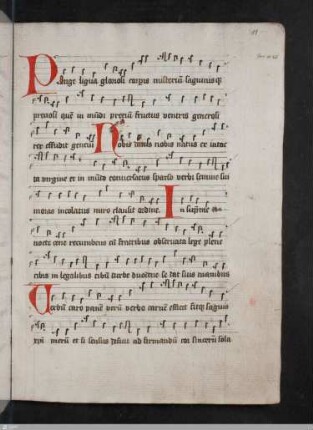 Pange ligua gloriosi corpis misteriũ saguinisq
preciosi quē in mūdi preciũ fructus ventris generosi
rex effudit gentiũ Nobis datus nobis natus ex intac
ta virgine et in mūdo conversatus sparso verbi semine sui
moras incolatus miro clausit ordine In supreme
nocte cene recumbens cū fratribus observata lege plene
cibis in legalibus cibũ turbe duodene se dat suis manibus
Verbũ caro panē verũ verbo carnē efficit fitq saguis
xpi merũ et si sensus deficit ad firmandũ cor sincerũ sola